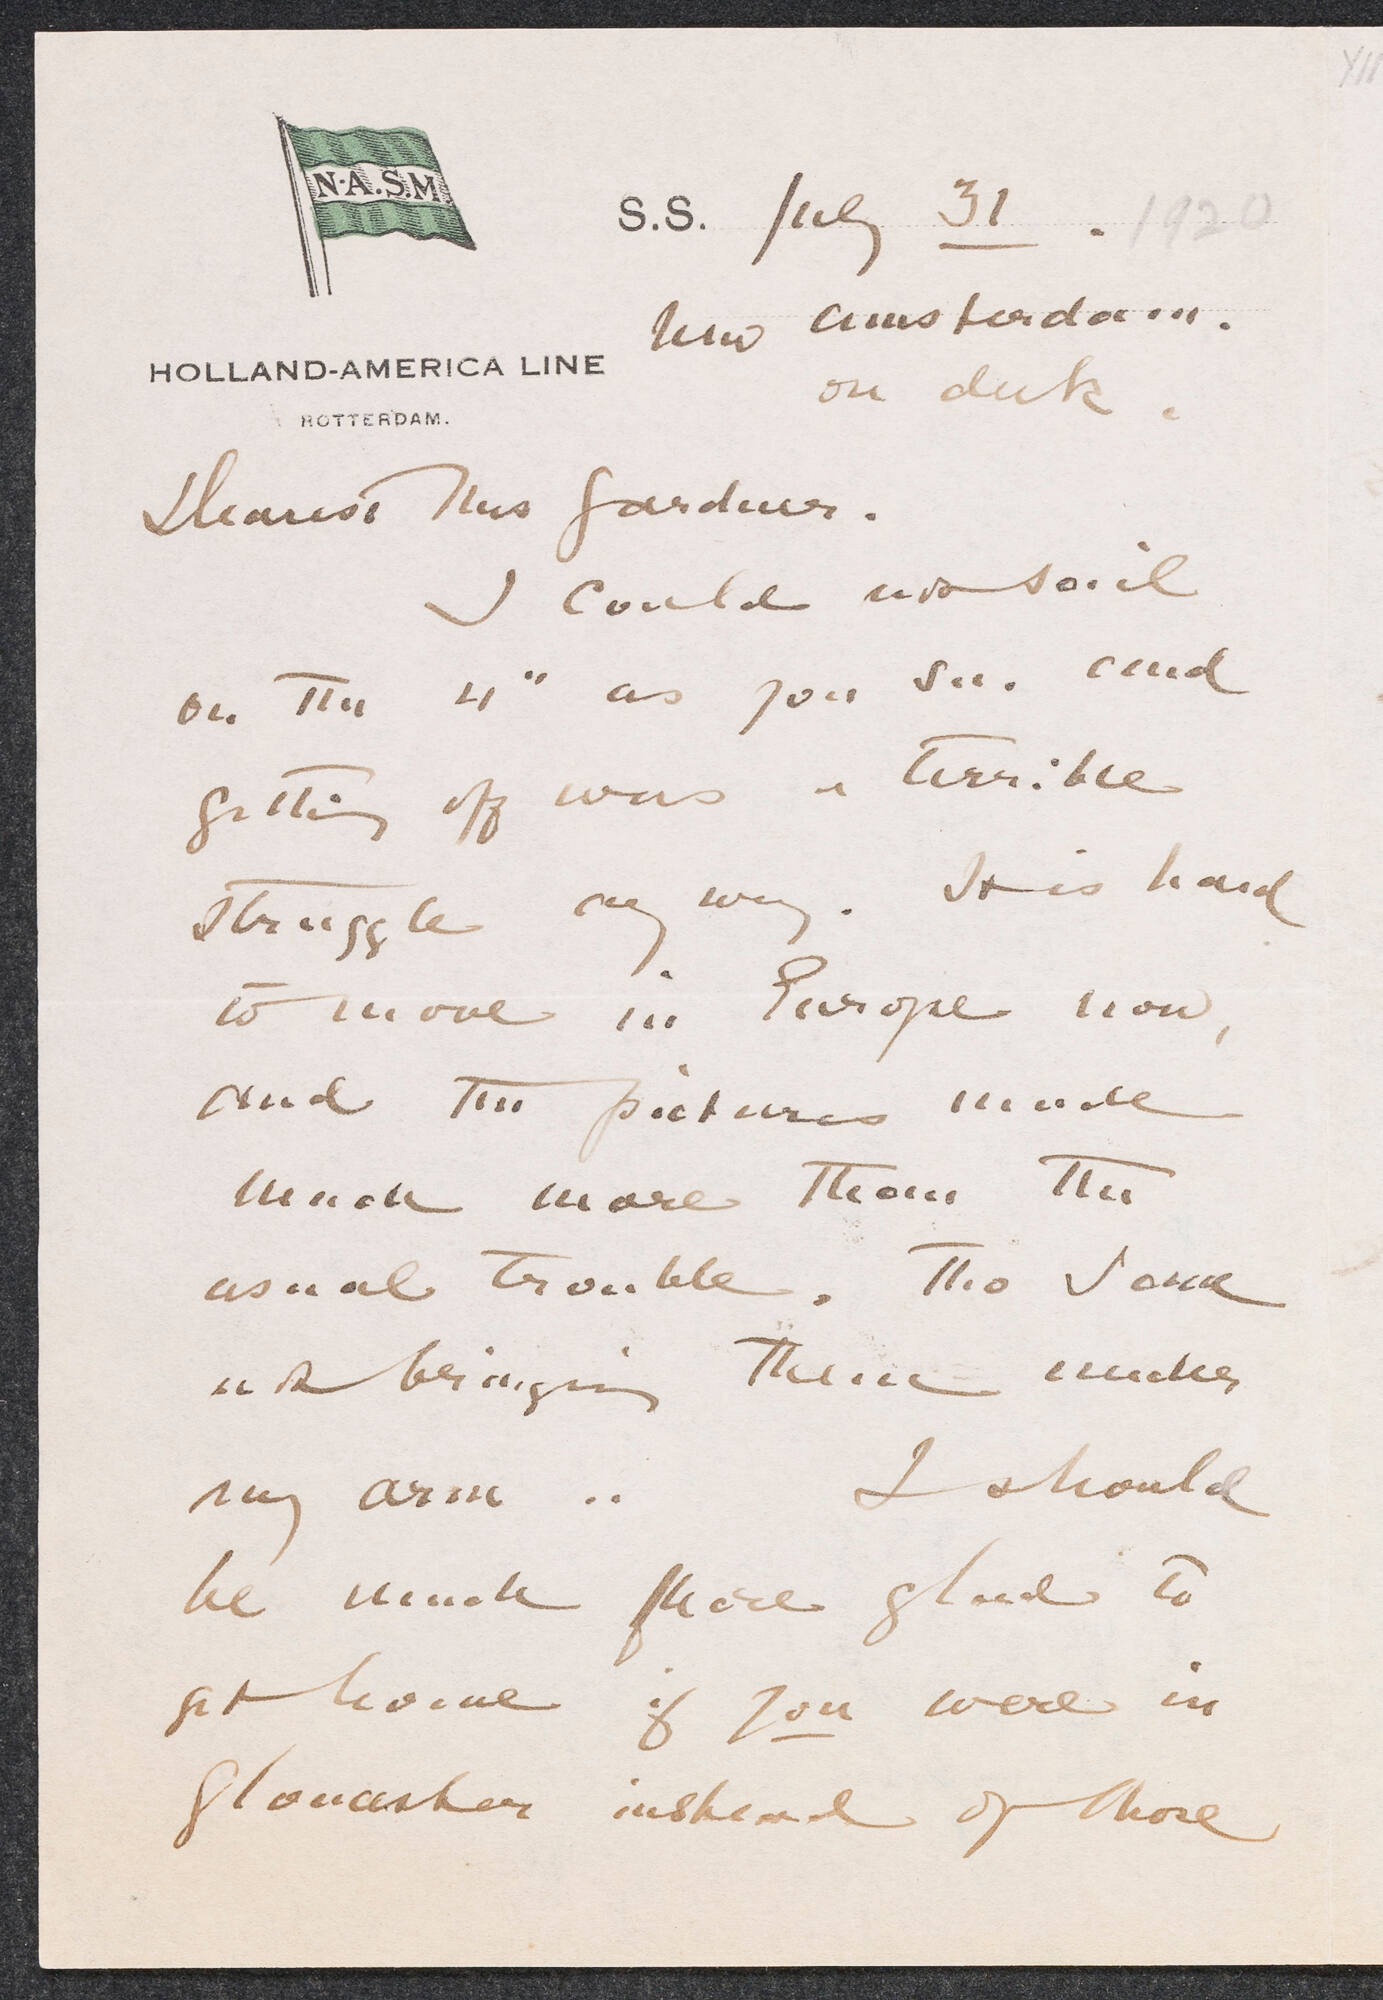 N.A.S.M
S.S. July 31. 1920
New Amsterdam.
HOLLAND-AMERICA LINE
on deck.
ROTTERDAM.
Dearest Mrs Gardner.
I could not sail
on the 4" as you see. and
getting off was a terrible
struggle any way. It is hard
to move in Europe now,
and the pictures made
much more than the
usual trouble. Tho I am
not bringing them under
my arm ..   I should
be much more glad to
get home if you were in
Gloucester instead of those